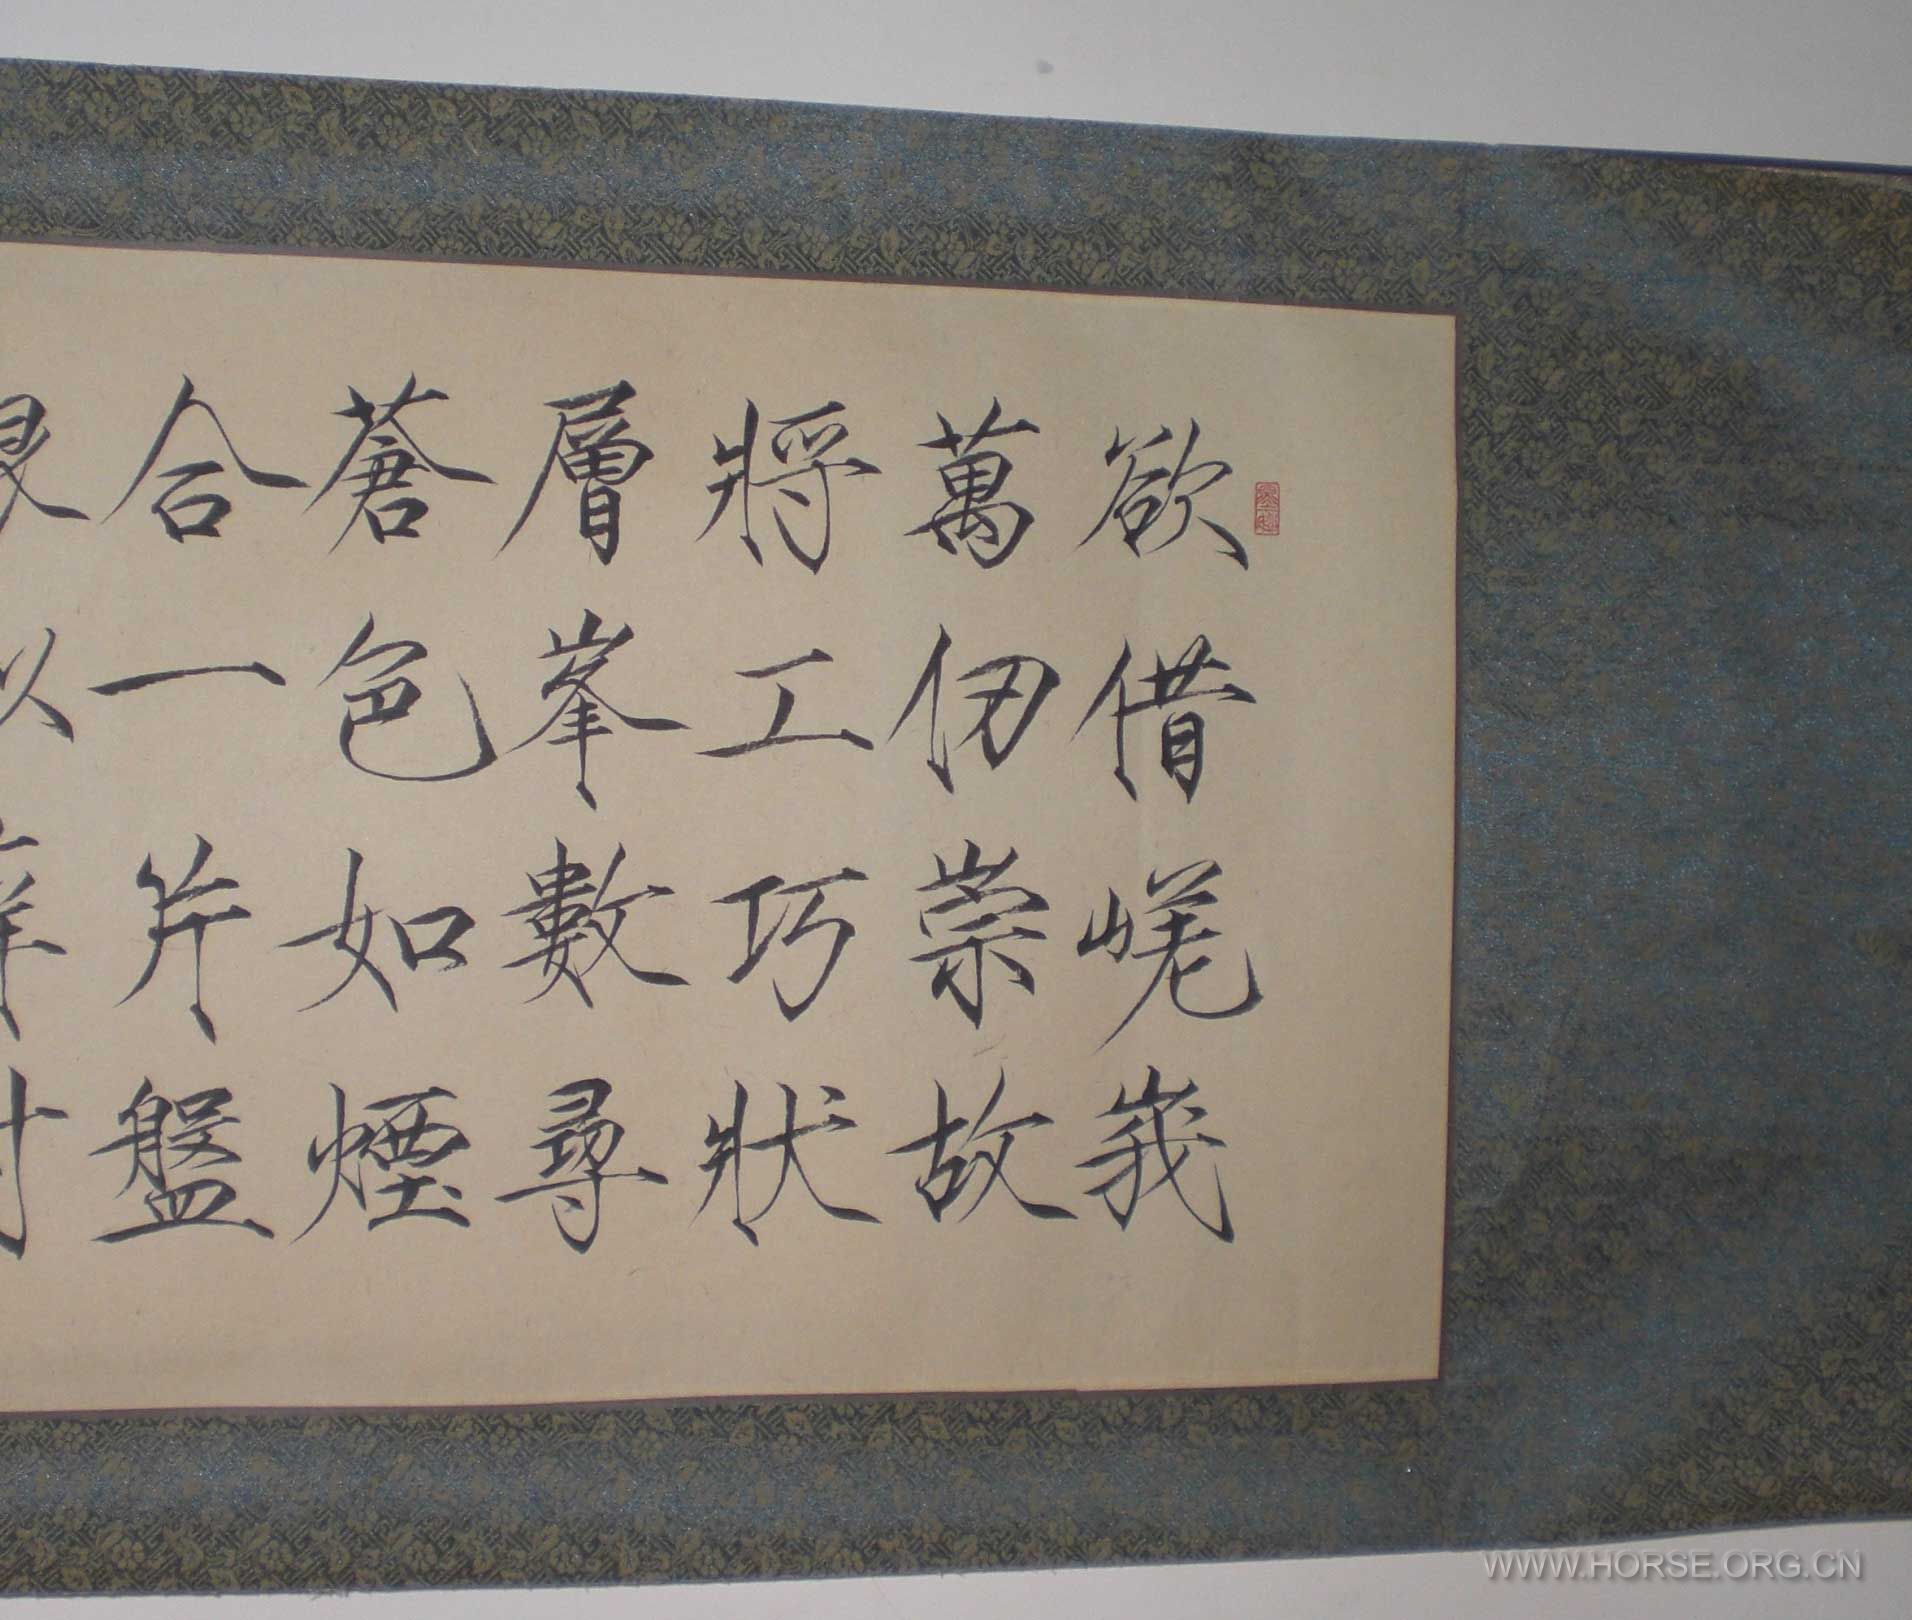 欲借嵯峨
萬仞崇故
將工巧狀
層峯數尋
蒼色如煙
合一片盤
WWW.HORSE.ORG.CN